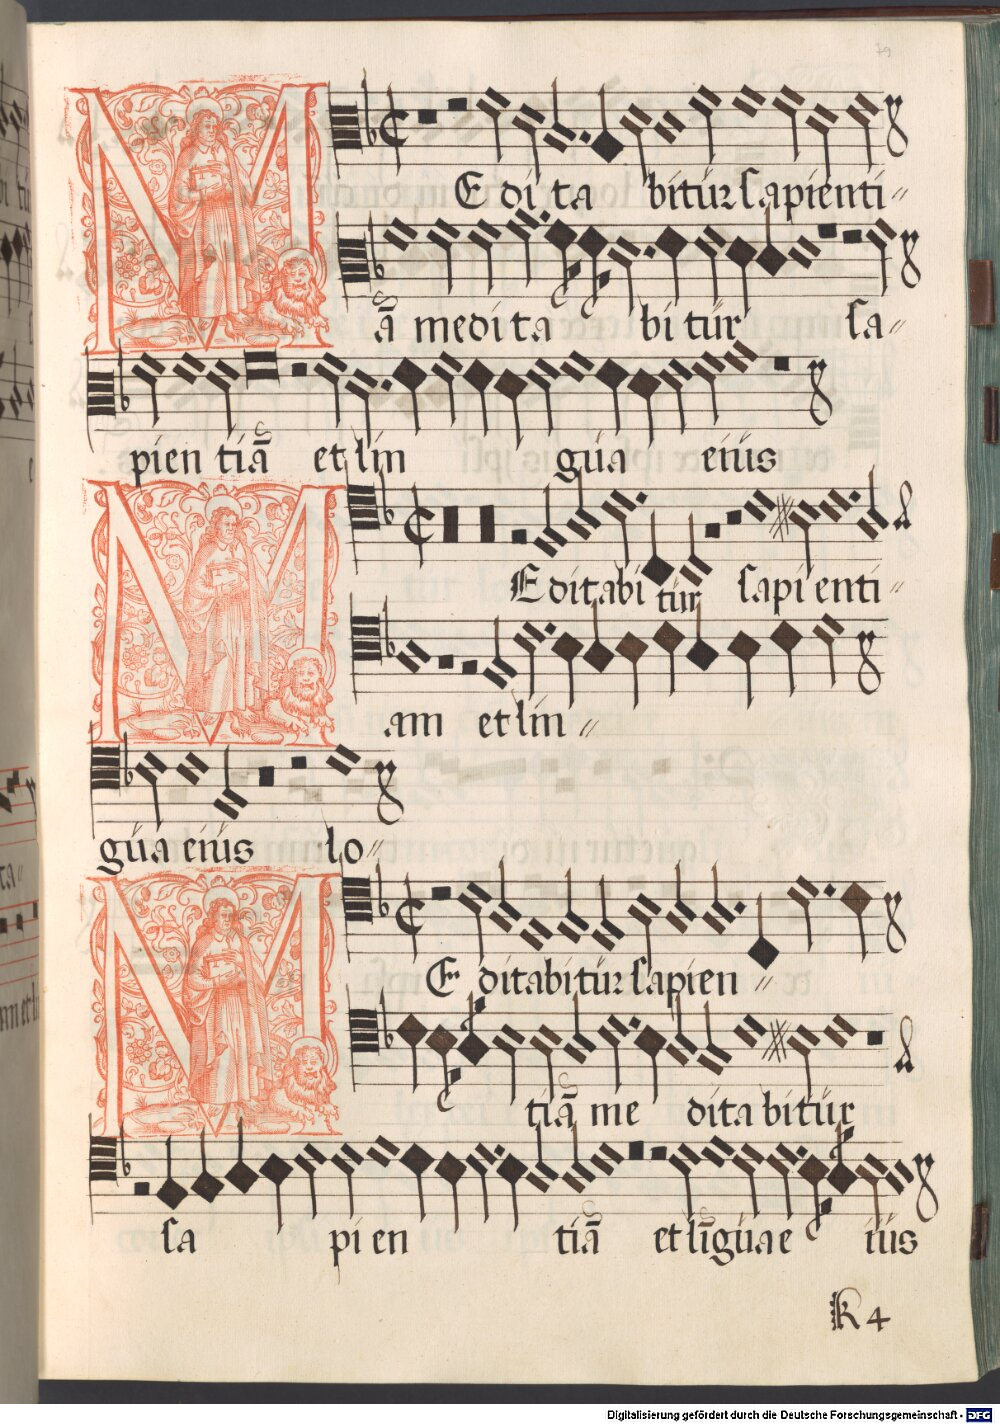 79
M E di ta bitur sapienti〃
ā medita bi tur sa〃
pien tiā et lin gua eius
M E ditabi tur sapi enti〃
am et lin〃
gua eius lo〃
M E ditabitur sapien〃
tiā me dita bitur
sa pi en tiā et līguae iūs
K 4
Digitalisierung gefördert durch die Deutsche Forschungsgemeinschaft - DFG